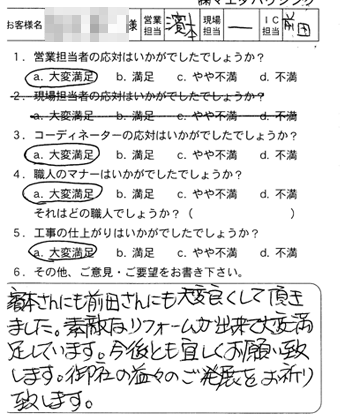 ㈱マエダハウジング
お客様名 様 営業担当 濱本 現場担当 ― IC担当 前田
1．営業担当者の応対はいかがでしたでしょうか？
a. 大変満足 b. 満足 c. やや不満 d. 不満
2．現場担当者の応対はいかがでしたでしょうか？
a. 大変満足 b. 満足 c. やや不満 d. 不満
3．コーディネーターの応対はいかがでしたでしょうか？
a. 大変満足 b. 満足 c. やや不満 d. 不満
4．職人のマナーはいかがでしたでしょうか？
a. 大変満足 b. 満足 c. やや不満 d. 不満
それはどの職人でしょうか？（ ）
5．工事の仕上がりはいかがでしたでしょうか？
a. 大変満足 b. 満足 c. やや不満 d. 不満
6．その他、ご意見・ご要望をお書き下さい。
濱本さんにも前田さんにも大変良くして頂き
ました。素敵なリフォームが出来て大変満
足しています。今後とも宜しくお願い致
します。御社の益々のご発展をお祈り
致します。